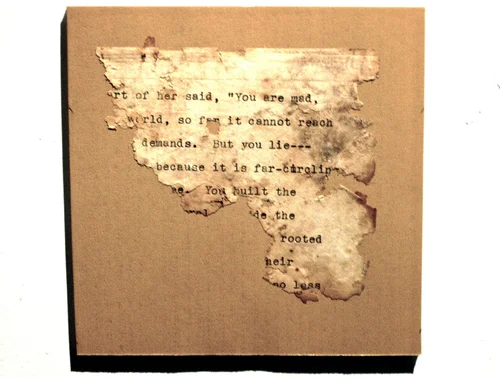 rt of her said, "You are mad,
world, so far it cannot reach
demands. But you lie---
because it is far-
You built the
de the
rooted
heir
no less